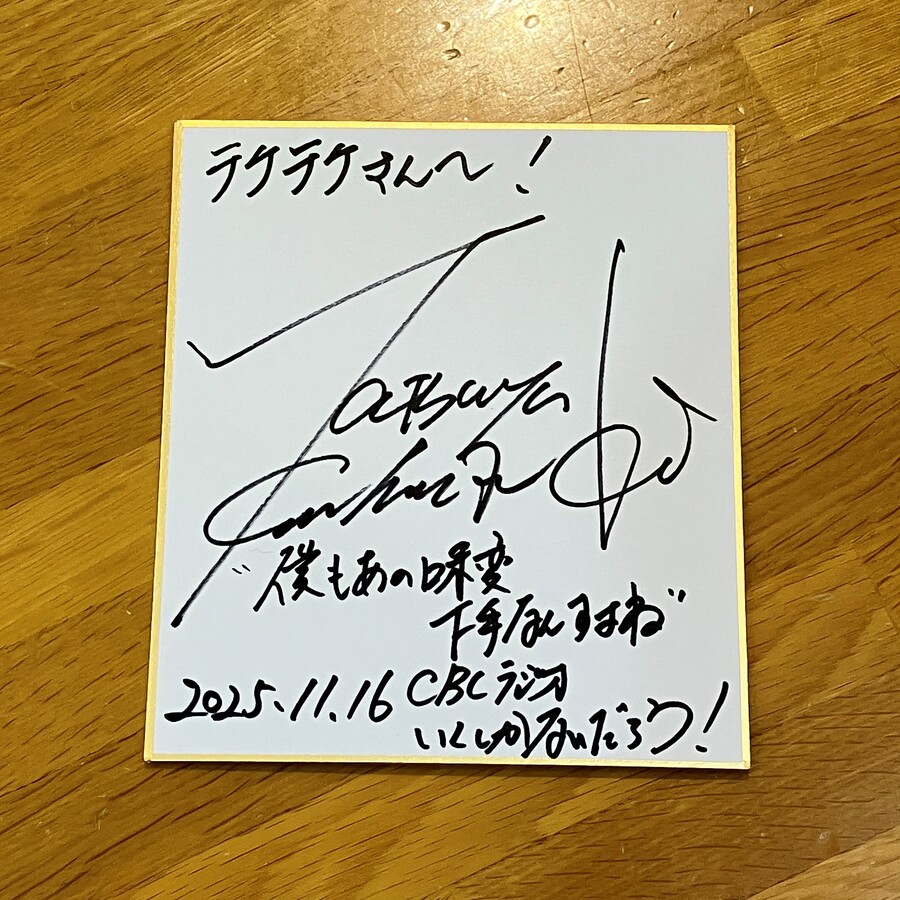 テケテケさんへ！
Tatsuya
"僕もあの味変
下手なんすよね"
2025.11.16 CBCラジオ
いくしかないだろう！